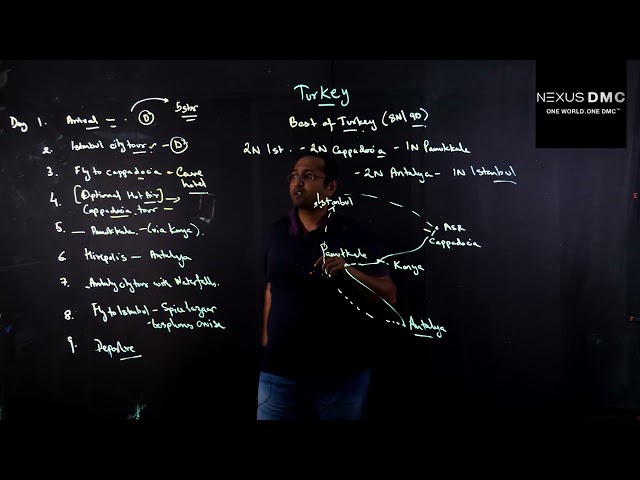 Turkey
Best of Turkey (8N/9D)
2N Ist. - 2N Cappadocia - 1N Pamukkale
- 2N Antalya - 1N Istanbul
Day 1. Arrival - D 5 str
2. Istanbul city tour - D
3. Fly to cappadocia - Cave hotel
4. [Optional Hot Air]
Cappadocia tour -
5. - Pamukkale - (via Konya).
6 Hirepolis - Antalya
7. Antaly city tour with Waterfalls.
8. Fly to Istanbul - Spice
- bosphorus
9. Departure
Istanbul
ASR
Cappadocia
Pamukkale
Konya
Antalya
NEXUS DMC
ONE WORLD. ONE DMC™